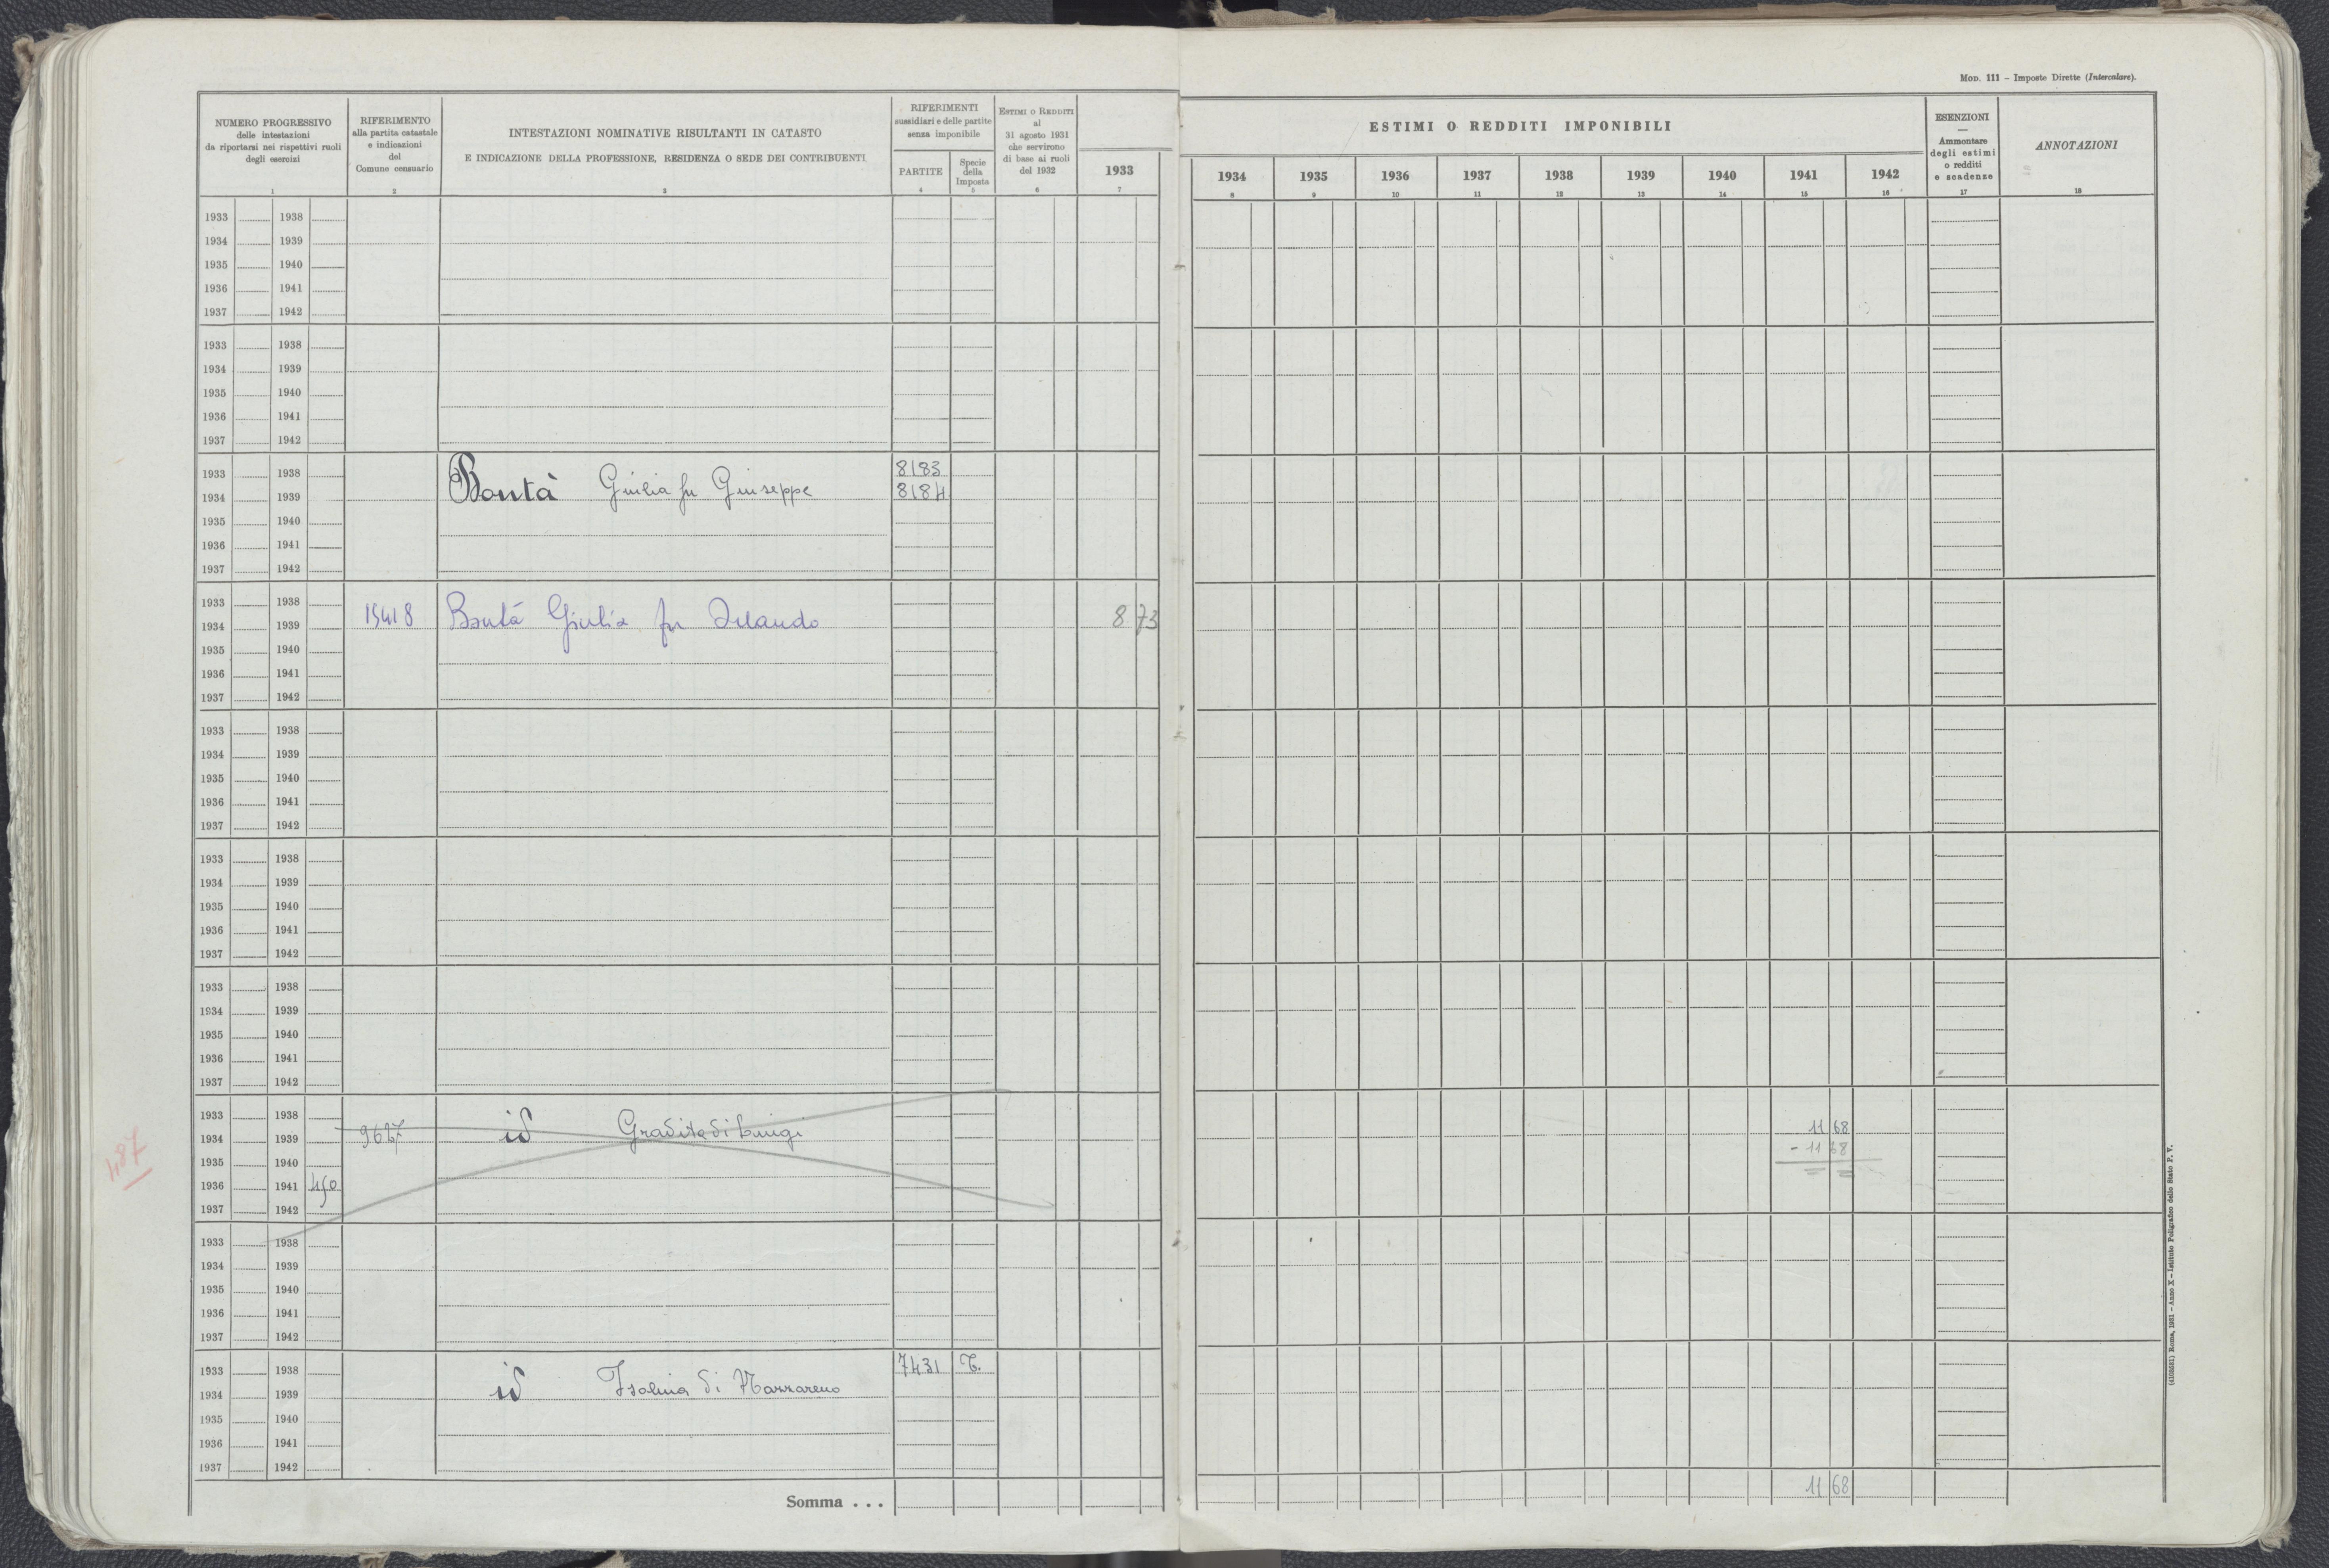 MOD. 111 – Imposte Dirette (Intercalare).
NUMERO PROGRESSIVO
delle intestazioni
da riportarsi nei rispettivi ruoli
degli esercizi
1
RIFERIMENTO
alla partita catastale
e indicazioni
del
Comune censuario
2
INTESTAZIONI NOMINATIVE RISULTANTI IN CATASTO
E INDICAZIONE DELLA PROFESSIONE, RESIDENZA O SEDE DEI CONTRIBUENTI
3
RIFERIMENTI
sussidiari e delle partite
senza imponibile
PARTITE
4
Specie
della
Imposta
5
ESTIMI O REDDITI
al
31 agosto 1931
che servirono
di base ai ruoli
del 1932
6
ESTIMI O REDDITI IMPONIBILI
1933
7
1934
8
1935
9
1936
10
1937
11
1938
12
1939
13
1940
14
1941
15
1942
16
ESENZIONI
—
Ammontare
degli estimi
o redditi
e scadenze
17
ANNOTAZIONI
18
1933 1938
1934 1939
1935 1940
1936 1941
1937 1942
1933 1938
1934 1939
1935 1940
1936 1941
1937 1942
1933 1938 8183
1934 1939 Bontà Giulia fu Giuseppe 8184
1935 1940
1936 1941
1937 1942
1933 1938
1934 1939 15418 Bontà Giulia fu Orlando 8 73
1935 1940
1936 1941
1937 1942
1933 1938
1934 1939
1935 1940
1936 1941
1937 1942
1933 1938
1934 1939
1935 1940
1936 1941
1937 1942
1933 1938
1934 1939
1935 1940
1936 1941
1937 1942
1933 1938
1934 1939 9627 id Gradita di Luigi 11 68
1935 1940 - 11 68
1936 1941 450
1937 1942
487
1933 1938
1934 1939
1935 1940
1936 1941
1937 1942
1933 1938 7431 T.
1934 1939 id Isolina di Nazzareno
1935 1940
1936 1941
1937 1942
Somma . . . 11 68
(4105851) Roma, 1931 – Anno X – Istituto Poligrafico dello Stato P. V.